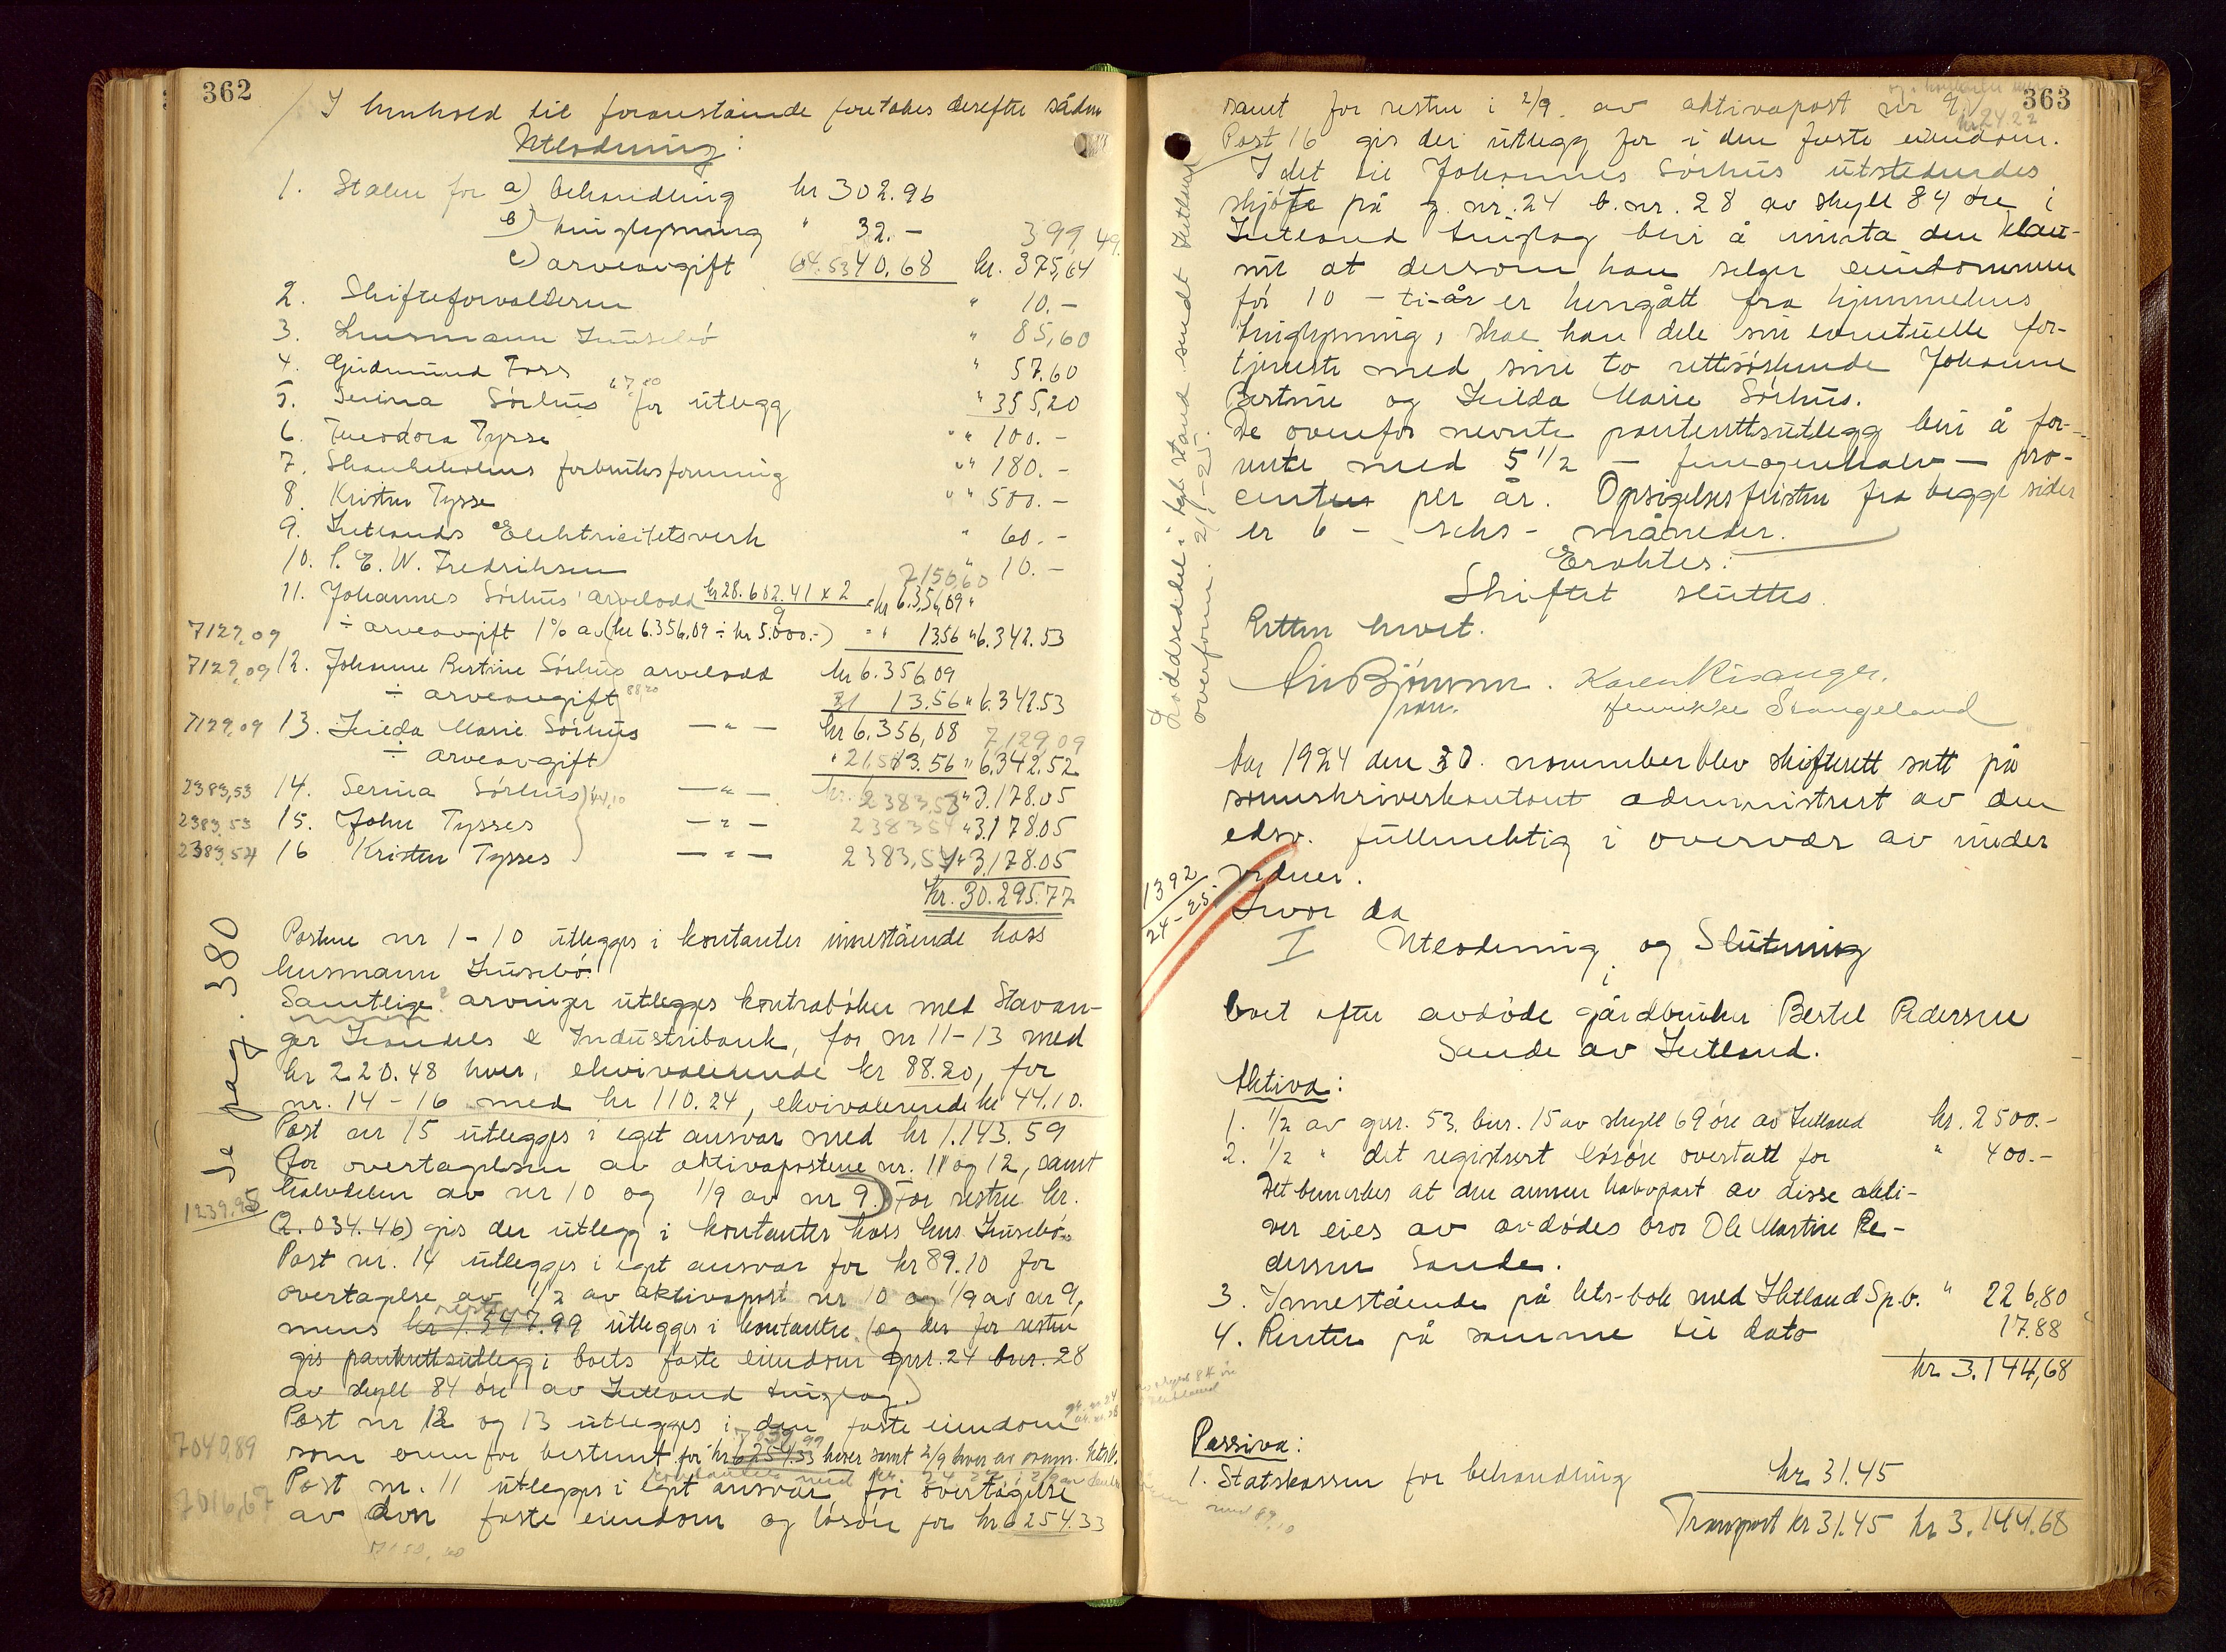 362
I henhold til foranstående foretokes derefter sådan
Utlodning:
1. Staten for a) behandling kr 302.96
b) tinglysning " 32.- 399,49
c) arveavgift 64.53 40,68 kr. 375,64
2. Skifteforvalteren " 10.-
3. Lensmann Husebö " 85,60
4. Gudmund Foss " 57.60
67.20
5. Serina Sörhus for utlegg " 355,20
6. Theodora Tysse " 100.-
7. Skankeholens forbruksforening " 180.-
8. Kristen Tysse " 500.-
9. Hetlands Elektricitetsverk " 60.-
10. P. E. W. Fredriksen " 10.-
7156,60
11. Johannes Sörhus' arvelodd kr 28.602.41 x 2 / 9 = kr 6.356,09
7129,09 ÷ arveavgift 1% av (kr 6.356,09 ÷ kr 5.000.-) " 13.56 " 6.342.53
7129,09 12. Johanne Bertine Sörhus arvelodd kr 6.356 09
÷ arveavgift 88.20 21 13.56 " 6.342.53
7129,09 13. Hilda Marie Sörhus — " — kr 6.356,08 7129,09
÷ arveavgift " 21.51 13.56 " 6.342,52
2383,53 14. Serina Sörhus 44,10 — " — 2383,53 " 3.178.05
2383,53 15. John Tysses — " — 2383 54 " 3.178.05
2383,54 16 Kristen Tysses — " — 2383,54 " 3.178.05
kr. 30.295.77
Se pag. 380
Postene nr 1-10 utlegges i kontanter innestående hoss
lensmann Husebö.
Samtlige arvinger utlegges kontraböker med Stavan-
ger Handels & Industribank, for nr 11-13 med
kr 220.48 hver, ekvivalerende kr 88.20, for
nr. 14-16 med kr 110.24, ekvivalerende kr 44.10.
Post nr 15 utlegges i eget ansvar med kr 1.143.59
(for overtagelsen av aktivapostene nr. 11 og 12, samt
halvdelen av nr 10 og 1/9 av nr 9.) For resten kr.
1239.95
(2.034.46) gis der utlegg i kontanter hoss lens. Husebö.
Post nr. 14 utlegges i eget ansvar for kr 89.10 for
overtagelse av 1/2 av aktivapost nr 10 og 1/9 av nr 9,
resten
mens kr 1.547.99 utlegges i kontanter. (og der for resten
gis panterettsutlegg i boets faste eiendom gnr. 24 bnr. 28
av skyll 84 öre av Hetland tinglag.)
Post nr 12 og 13 utlegges i den faste eiendom
7040,89 som ovenfor bestemt for kr 6254.33 hver samt 2/9 hver av
kontanter med kr. 24 22 i 2/9 av
Post nr. 11 utlegges i eget ansvar for overtagelse
7016,67 av den faste eiendom og lösöre for kr 6254.33
363
samt for resten i 2/9 av aktivapost nr 9.
kr 24.22
Post 16 gis der utlegg for i den faste eiendom.
I det til Johannes Sörhus utstedendes
skjöte på g. nr. 24 b. nr. 28 av skyll 84 öre i
Hetland tinglag blir å innta den klau-
sul at dersom han selger eiendommen
för 10 - ti-år er hengått fra hjemmelens
tinglysning, skal han dele sin eventuelle for-
tjeneste med sine to rettsöskende Johanne
Bertine og Hilda Marie Sörhus.
De ovenfor nevnte panterettsutlegg blir å for-
rente med 5 1/2 - femogenhalv - pro-
center per år. Opsigelsesfristen fra begge sider
er 6 - seks - måneder.
Eraktes:
Skiftet sluttes.
Retten hevet.
Karen Risanger.
Henrikke Stangeland
Loddseddel i tgl. stand sendt Hetland
overform. 2/1-25.
År 1924 den 30. november blev skifterett satt på
sorenskriverkontoret administrert av den
edsv. fullmektig i overvær av under
vidner.
1392
24-25.
Hvor da
I Utlodning og Slutning
i
boet efter avdöde gårdbruker Bertel Pedersen
Sande av Hetland.
Aktiva:
1. 1/2 av gnr. 53, bnr. 15 av skyll 69 öre av Hetland kr. 2500.-
2. 1/2 " det registrert lösöre overtatt for " 400.-
Det bemerkes at den annen halvpart av disse akti-
ver eies av avdödes bror Ole Martin Pe-
dersen Sande.
3. Innestående på ktr-bok med Hetland Sp.b. " 226,80
4. Renter på samme til dato 17.88
kr. 3.144,68
av skyld 84 öre
Passiva:
1. Statskassen for behandling kr 31.45
med 89,10
Transport kr 31.45 kr 3.144.68